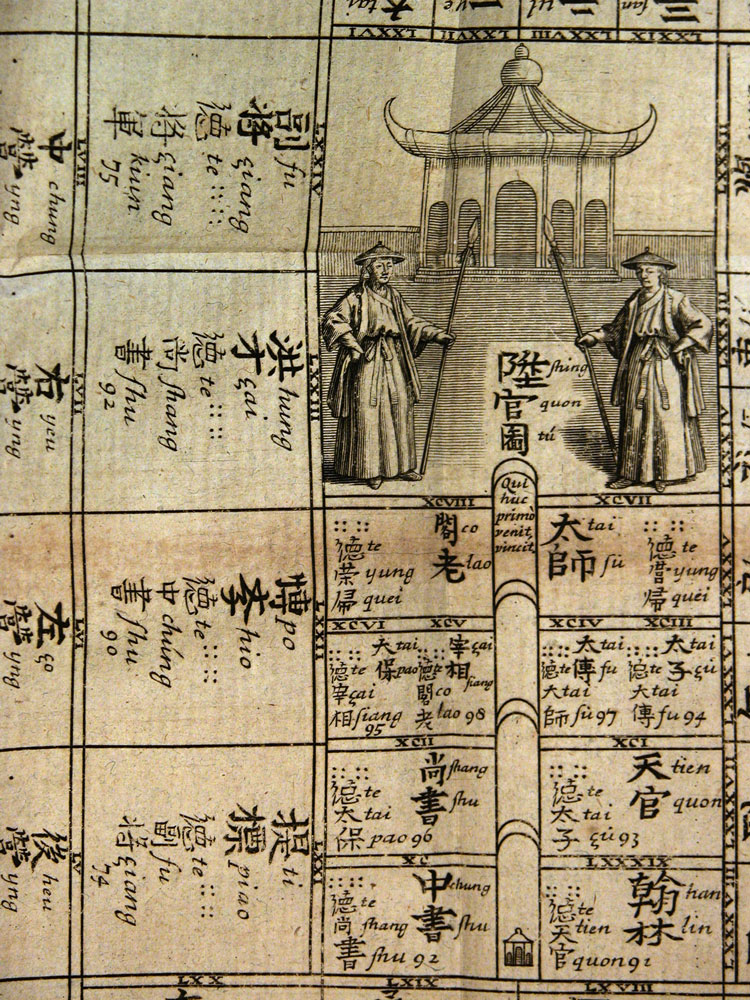 木 tai
LXXVI
LXXVII
LXXVIII
三 fan
LXXIX
陞 shing
官 quon
圖 tú
Qui
huc
primò
venit,
vincit.
XCVIII
閣 co
老 lao
德 te
榮 yung
帰 quei
XCVII
太 tai
師 sù
德 te
yung
帰 quei
XCVI
太 tai
保 pao
德 te
宰 çai
相 siang
95
XCV
宰 çai
相 siang
德 te
閣 co
老 lao 98
XCIV
太 tai
傅 fu
德 te
太 tai
師 sù 97
XCIII
太 tai
子 çù
德 te
太 tai
傅 fu 94
XCII
尚 shang
書 shu
德 te
太 tai
保 pao 96
XCI
天 tien
官 quon
德 te
太 tai
子 çù 93
XC
中 chung
書 shu
德 te
尚 shang
書 shu 92
LXXXIX
翰 han
林 lin
德 te
天 tien
官 quon 91
LXX
LXIX
LXVIII
LXXIV
副 fu
将 çiang
德 te
将 çiang
軍 kiun
75
LXXIII
洪 hung
才 çai
德 te
尚 shang
書 shu
92
LXXII
博 po
孝 hio
德 te
中 chúng
書 shu
90
LXXI
提 ti
標 piao
德 te
副 fu
将 çiang
74
LVIII
中 chung
營 yng
LVII
右 yeu
營 yng
LVI
左 ço
營 yng
LV
後 heu
營 yng